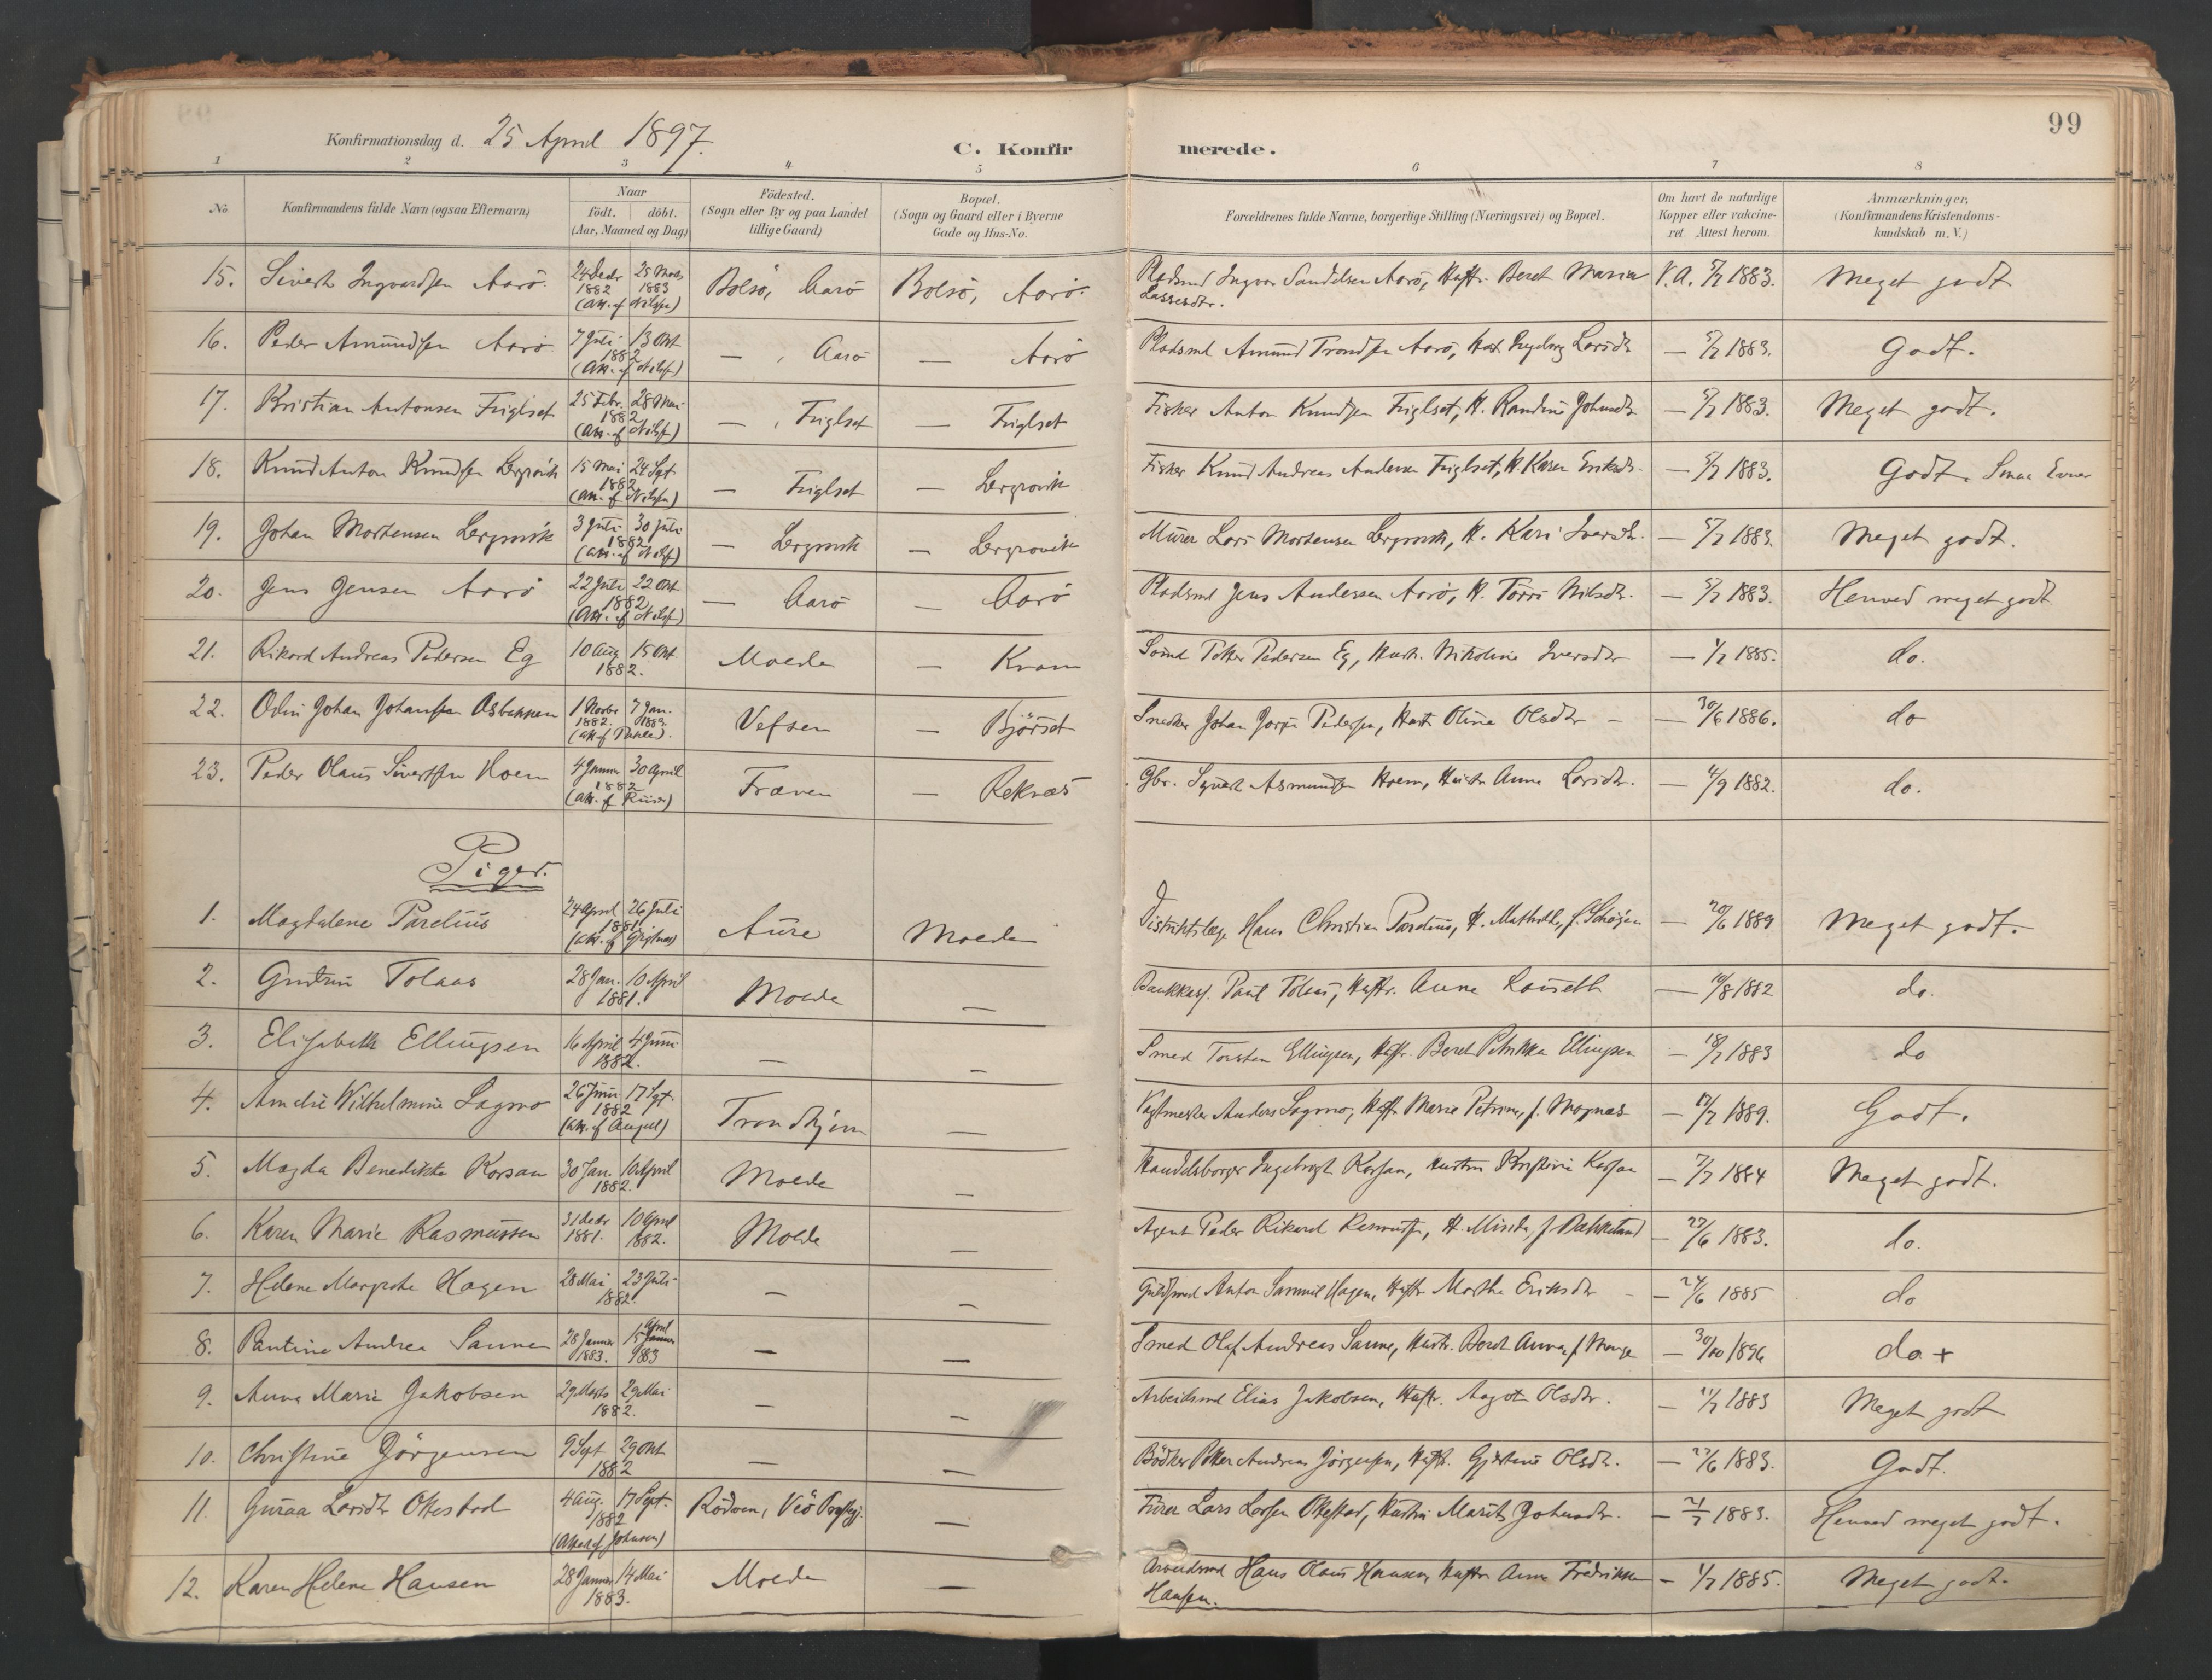 99
Konfirmationsdag d. 25 April 1897.
C. Konfirmerede.
1 2 3 4 5 6 7 8
No. Konfirmandens fulde Navn (ogsaa Efternavn) Naar født. døbt. (Aar, Maaned og Dag) Födested. (Sogn eller By og paa Landet tillige Gaard) Bopæl. (Sogn og Gaard eller i Byerne Gade og Hus-No. Forældrenes fulde Navne, borgerlige Stilling (Næringsvei) og Bopæl. Om havt de naturlige Kopper eller vakcineret. Attest herom. Anmærkninger, (Konfirmandens Kristendomskundskab m. V.)
15. Sivert Ingvardsen Aarö. 24 Decbr 1882 25 Marts 1883 (Att. af Nilssen) Bolsö, Aarö Bolsö, Aarö. Pladsmd Ingvar Sandelsen Aarö, Hustr. Beret Maria Lassesdtr. V.A. 5/7 1883. Meget godt
16. Peder Amundsen Aarö 7 Juli 13 Okt 1882 (Att. af Nilss.) — , Aarö — Aarö Pladsmd Amund Trondsen Aarö, Hust. Ingeborg Larsdtr — 5/7 1883. Godt.
17. Kristian Antonsen Fuglset 25 Febr. 28 Mai 1882 (Att. af Nilss.) — , Fuglset — Fuglset Fisker Anton Knudsen Fuglset, H. Randine Johnsdtr — 5/7 1883. Meget godt.
18. Knud Anton Knudsen Lergrovik 15 Mai 24 Spt 1882 (Att. af Nilssen) — Fuglset — Lergrovik Fisker Knud Andreas Andersen Fuglset, H. Karen Eriksdr. — 5/7 1883. Godt. Smaa Evner
19. Johan Mortensen Lergrovik 3 Juli 30 Juli 1882 (Att. af Nilss.) — Lergrovik — Lergrovik Murer Lars Mortensen Lergrovik, H. Kari Iversdtr. — 5/7 1883. Meget godt.
20. Jens Jensen Aarö 22 Juli 22 Okt 1882 (Att. af Nilss.) — Aarö — Aarö Pladsmd Jens Andersen Aarö, H. Torri Nilsdr. — 5/7 1883. Henved meget godt
21. Rikard Andreas Pedersen Eg 10 Aug 15 Okt. 1882. Molde — Kvam Sömd Petter Pedersen Eg, Hustr. Nikoline Iversdtr — 1/7 1885. do.
22. Odin Johan Johansen Asbakken 1 Novbr 1882. 7 Jan. 1883. Vefsen — Björset Snedker Johan Jorgen Pedersen, Hustr Oline Olsdtr — 30/6 1886. do
23. Peder Olaus Sivertsen Hoem 4 Januar 30 April 1882 Fræven — Reknæs Gbr. Syvert Asmundsen Hoem, Hustr Anne Larsdtr. — 4/9 1882. do.
Piger.
1. Magdalene Parelius 24 April 26 Juli 1881 Aure Molde Distriktslæge Hans Christian Parelius, H. Mathilde, f. Schöjen — 20/6 1889 Meget godt.
2. Gudrun Tolaas 28 Jan. 10 April 1881. Molde — Bankkass. Paul Tolaas, Hustr. Anne — 10/8 1882 do.
3. Elisabeth Ellingsen 16 April 4 Juni 1882. — — Smed Torsten Ellingsen, Hustr. Beret Petrikka Ellingsen — 18/7 1883 do
4. Amelie Wilhelmine Lagmo 26 Juni 17 Spt. 1882 Trondhjem — Vagtmester Anders Lagmo, Hustr Marie Petrine, f. Mognæs — 17/7 1889. Godt.
5. Magda Benedikte Korsan 30 Jan. 10 April 1882. Molde — Handelsborger Ingebrigt Korsan, Hustru Kristine Korsan — 7/7 1884 Meget godt.
6. Karen Marie Rasmussen 31 Decbr 1881. 10 April 1882. Molde — Agent Peder Rikard Rasmussen, H. — 27/6 1883. do.
7. Helene Margrete Hagen 28 Mai 23 Juli 1882. — — Guldsmed Anton Samuel Hagen, Hustr Marthe Eriksdtr — 24/6 1885 do
8. Pauline Andrea Sanne 28 Januar 1883. 15 April 1883 — — Smed Olaf Andreas Sanne, Hustr. Beret Anna, f. — 30/10 1896 do +
9. Anna Marie Jakobsen 29 Marts 29 Mai 1882. — — Arbeidsmd Elias Jakobsen, Hustr. Aagot Olsdtr. — 11/7 1883 Meget godt
10. Christine Jörgensen 9 Spt 29 Okt 1882 — — Bödker Peter Andreas Jörgensen, Hustr. Gjertine Olsdtr. — 27/6 1883. Godt.
11. Guraa Larsdtr Okestad 4 Aug. 17 Sept. 1882 (Attest af Johnsen) Rödven, Veö Prgj. — Förer Lars Larsen Okestad, Hustru Marit Johnsdtr. — 21/7 1883. Henved meget godt.
12. Karen Helene Hansen 28 Januar 14 Mai 1883. Molde — Arbeidsmd Hans Olaus Hansen, Hustr Anne Fredrikke Hansen. — 1/7 1885. Meget godt.